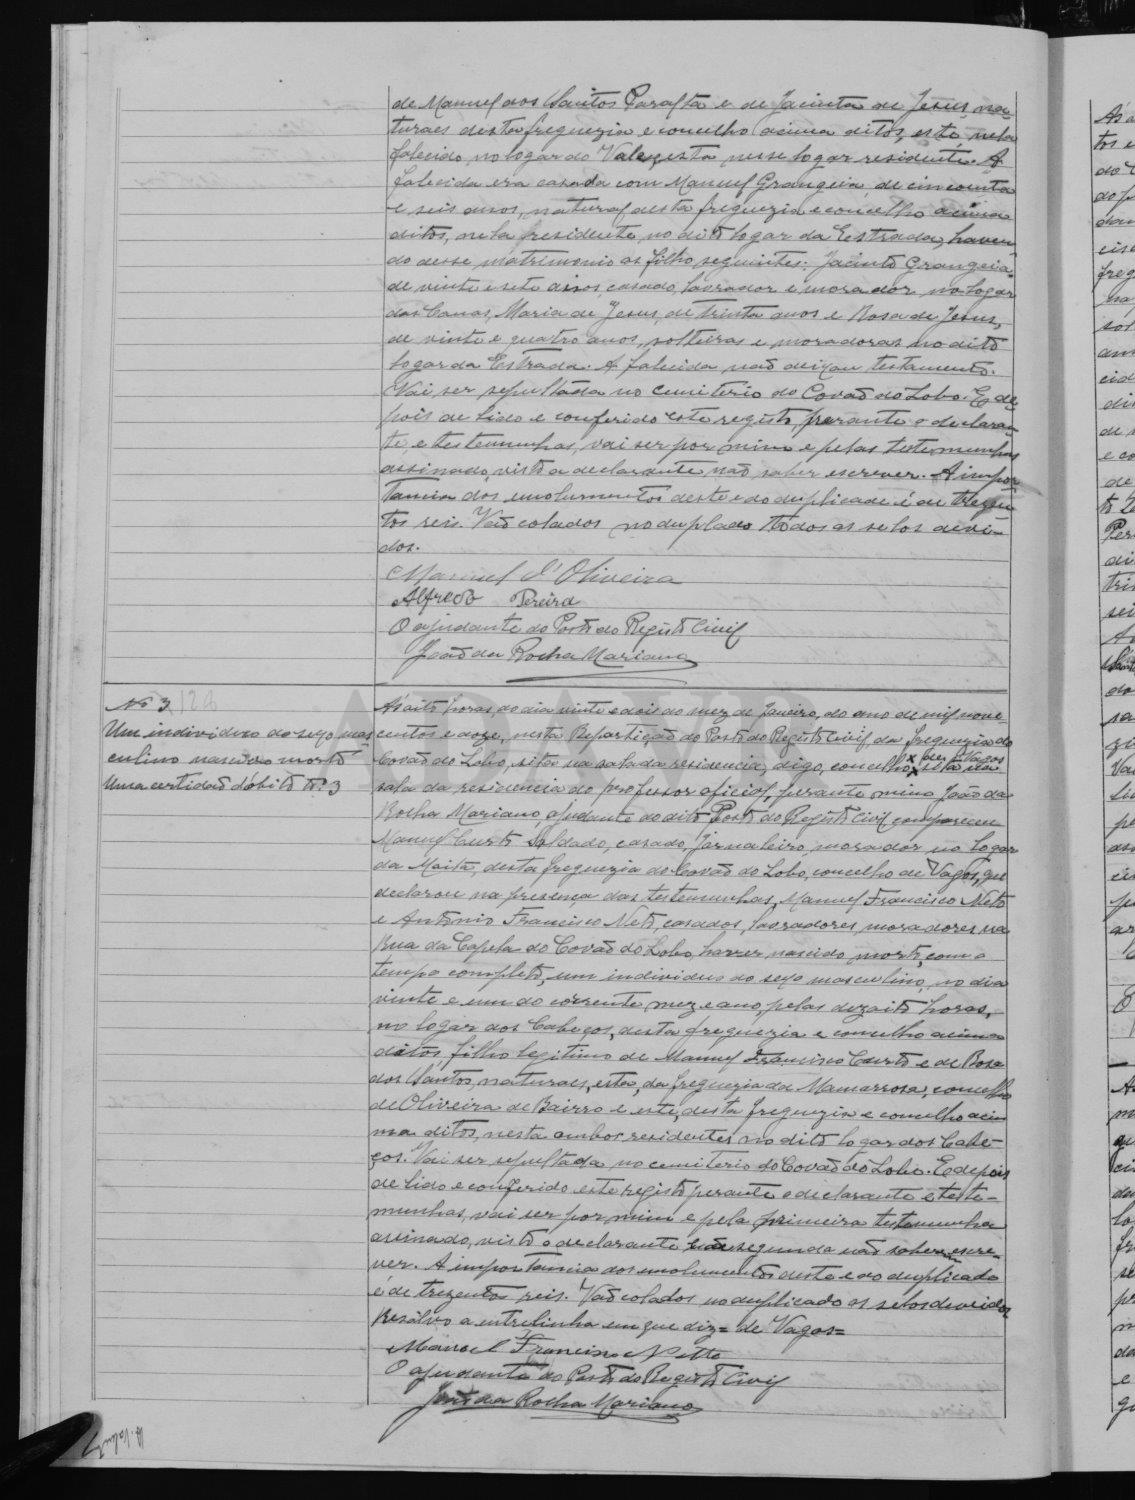 de Manuel dos Santos Parafta e de Jacinta de Jesus, na-
turaes desta freguezia e concelho acima ditos, este, nela
falecido, no logar do Vale, esta nesse logar residente. A
falecida era casada com Manuel Grangeia, de cincoenta
e seis anos, natural desta freguezia e concelho acima
ditos, nela residente, no dito logar da Estrada, haven-
do desse matrimonio os filho seguintes: Jacinto Grangeia
de vinte e sete anos, casado, lavrador e morador no logar
das Canas, Maria de Jesus, de trinta anos e Rosa de Jesus,
de vinte e quatro anos, solteiras e moradoras no dito
logar da Estrada. A falecida não deixou testamento.
Vai ser sepultada no cemiterio do Covão do Lobo. E de-
pois de lido e conferido este registo, perante o declaran-
te, e testemunhas, vai ser por mim e pelas testemunhas
assinado, visto a declarante não saber escrever. A impor-
tancia dos emolumentos deste e do duplicado é de trezen-
tos reis. Vão colados no duplado todos os selos devi-
dos.
Manuel d'Oliveira
Alfredo Pereira
O ajudante do Posto do Registo Civil
João da Rocha Mariano
Nº 3
Um individuo do sexo mas-
culino nascido morto
Uma certidão d'óbito nº 3
Ás oito horas, do dia vinte e dois do mez de Janeiro, do ano de mil nove-
centos e doze, nesta Repartição do Posto do Registo Civil da freguezia do
Covão do Lobo, sita na sala da residencia, digo, concelho de Vagos sita na
sala da residencia do professor oficial, perante mim João da
Rocha Mariano, ajudante do dito Posto do Registo Civil compareceu
Manuel Curto Soldado, casado, jornaleiro, morador no logar
da Maita, desta freguezia do Covão do Lobo, concelho de Vagos, que
declarou na presença das testemunhas, Manuel Francisco Neto
e Antonio Francisco Neto, casados, lavradores, moradores na
Rua da Capela do Covão do Lobo, haver nascido morto, com o
tempo completo, um individuo do sexo masculino, no dia
vinte e um do corrente mez e ano, pelas dezoito horas,
no logar dos Cabeços, desta freguezia e concelho acima
ditos, filho legitimo de Manuel Francisco Curto e de Rosa
dos Santos, naturaes, esta, da freguezia da Mamarrosa, concelho
de Oliveira de Bairro e este, desta freguezia e concelho aci-
ma ditos, nesta ambos residentes no dito logar dos Cabe-
ços. Vai ser sepultada no cemiterio do Covão do Lobo. E depois
de lido e conferido este registo perante o declarante e teste-
munhas, vai ser por mim e pela primeira testemunha
assinado, visto o declarante e a segunda não saberem escre-
ver. A importancia dos emolumentos deste e do duplicado
é de trezentos reis. Vão colados no duplicado os selos devidos
Resálvo a entrelinha em que diz = de Vagos =
Manoel Francisco Netto
O ajudante do Posto do Registo Civil
João da Rocha Mariano